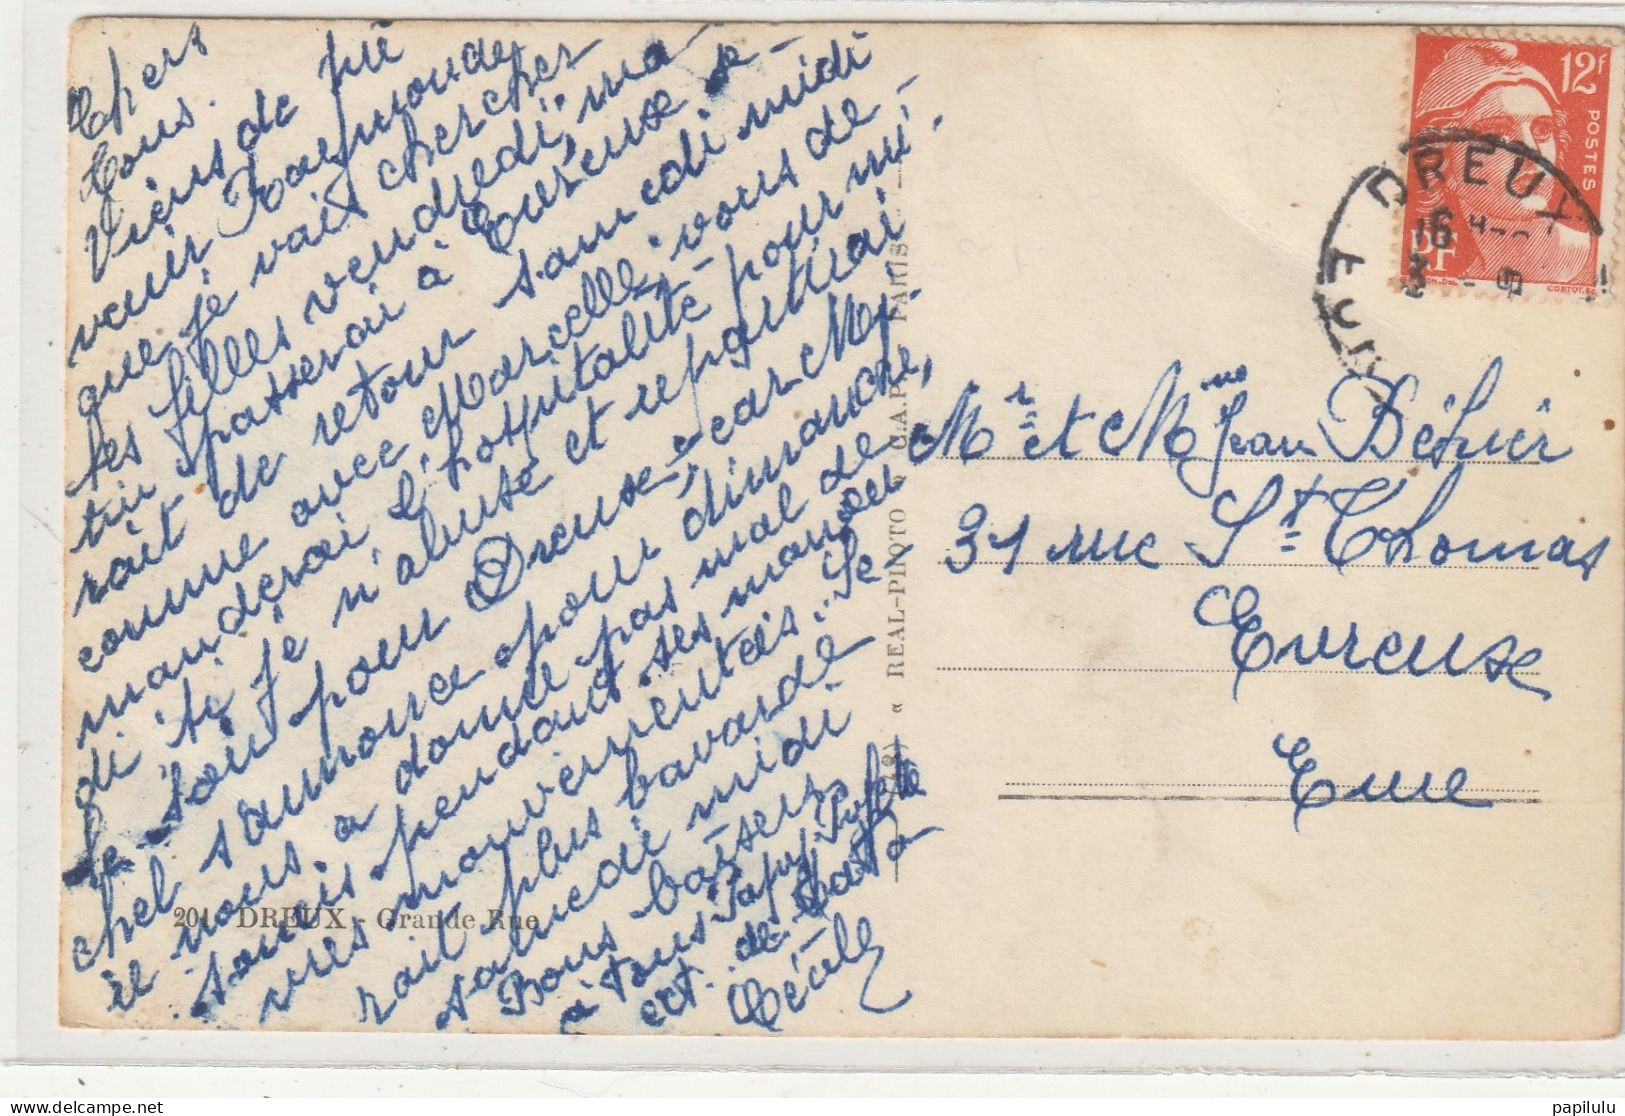 Chers
Tous.
Viens de pré
venir Raymonde
que je vais chercher
les filles vendredi, ma
tin passerai à Evreuse se
rait de retour samedi midi
comme avec Marcelle, vous de
manderai l'hospitalité pour mi
di si je n'abuse et repartirai
le soir pour Dreuse, car My-
chel s'annonce pour dimanche,
il nous a donné pas mal de
soucis pendant ses manœu
vres mouvementés. Se
rait plus bavarde
samedi midi
Bons baisers
à tous Papy
ect. de
Cécile
201 DREUX - Grande Rue
« REAL-PHOTO » C.A.P. PARIS
12f
POSTES
RF
DREUX
16 H
EURE
Mr et Mme Jean Béhier
31 rue St Thomas
Evreuse
Eure
papilulu